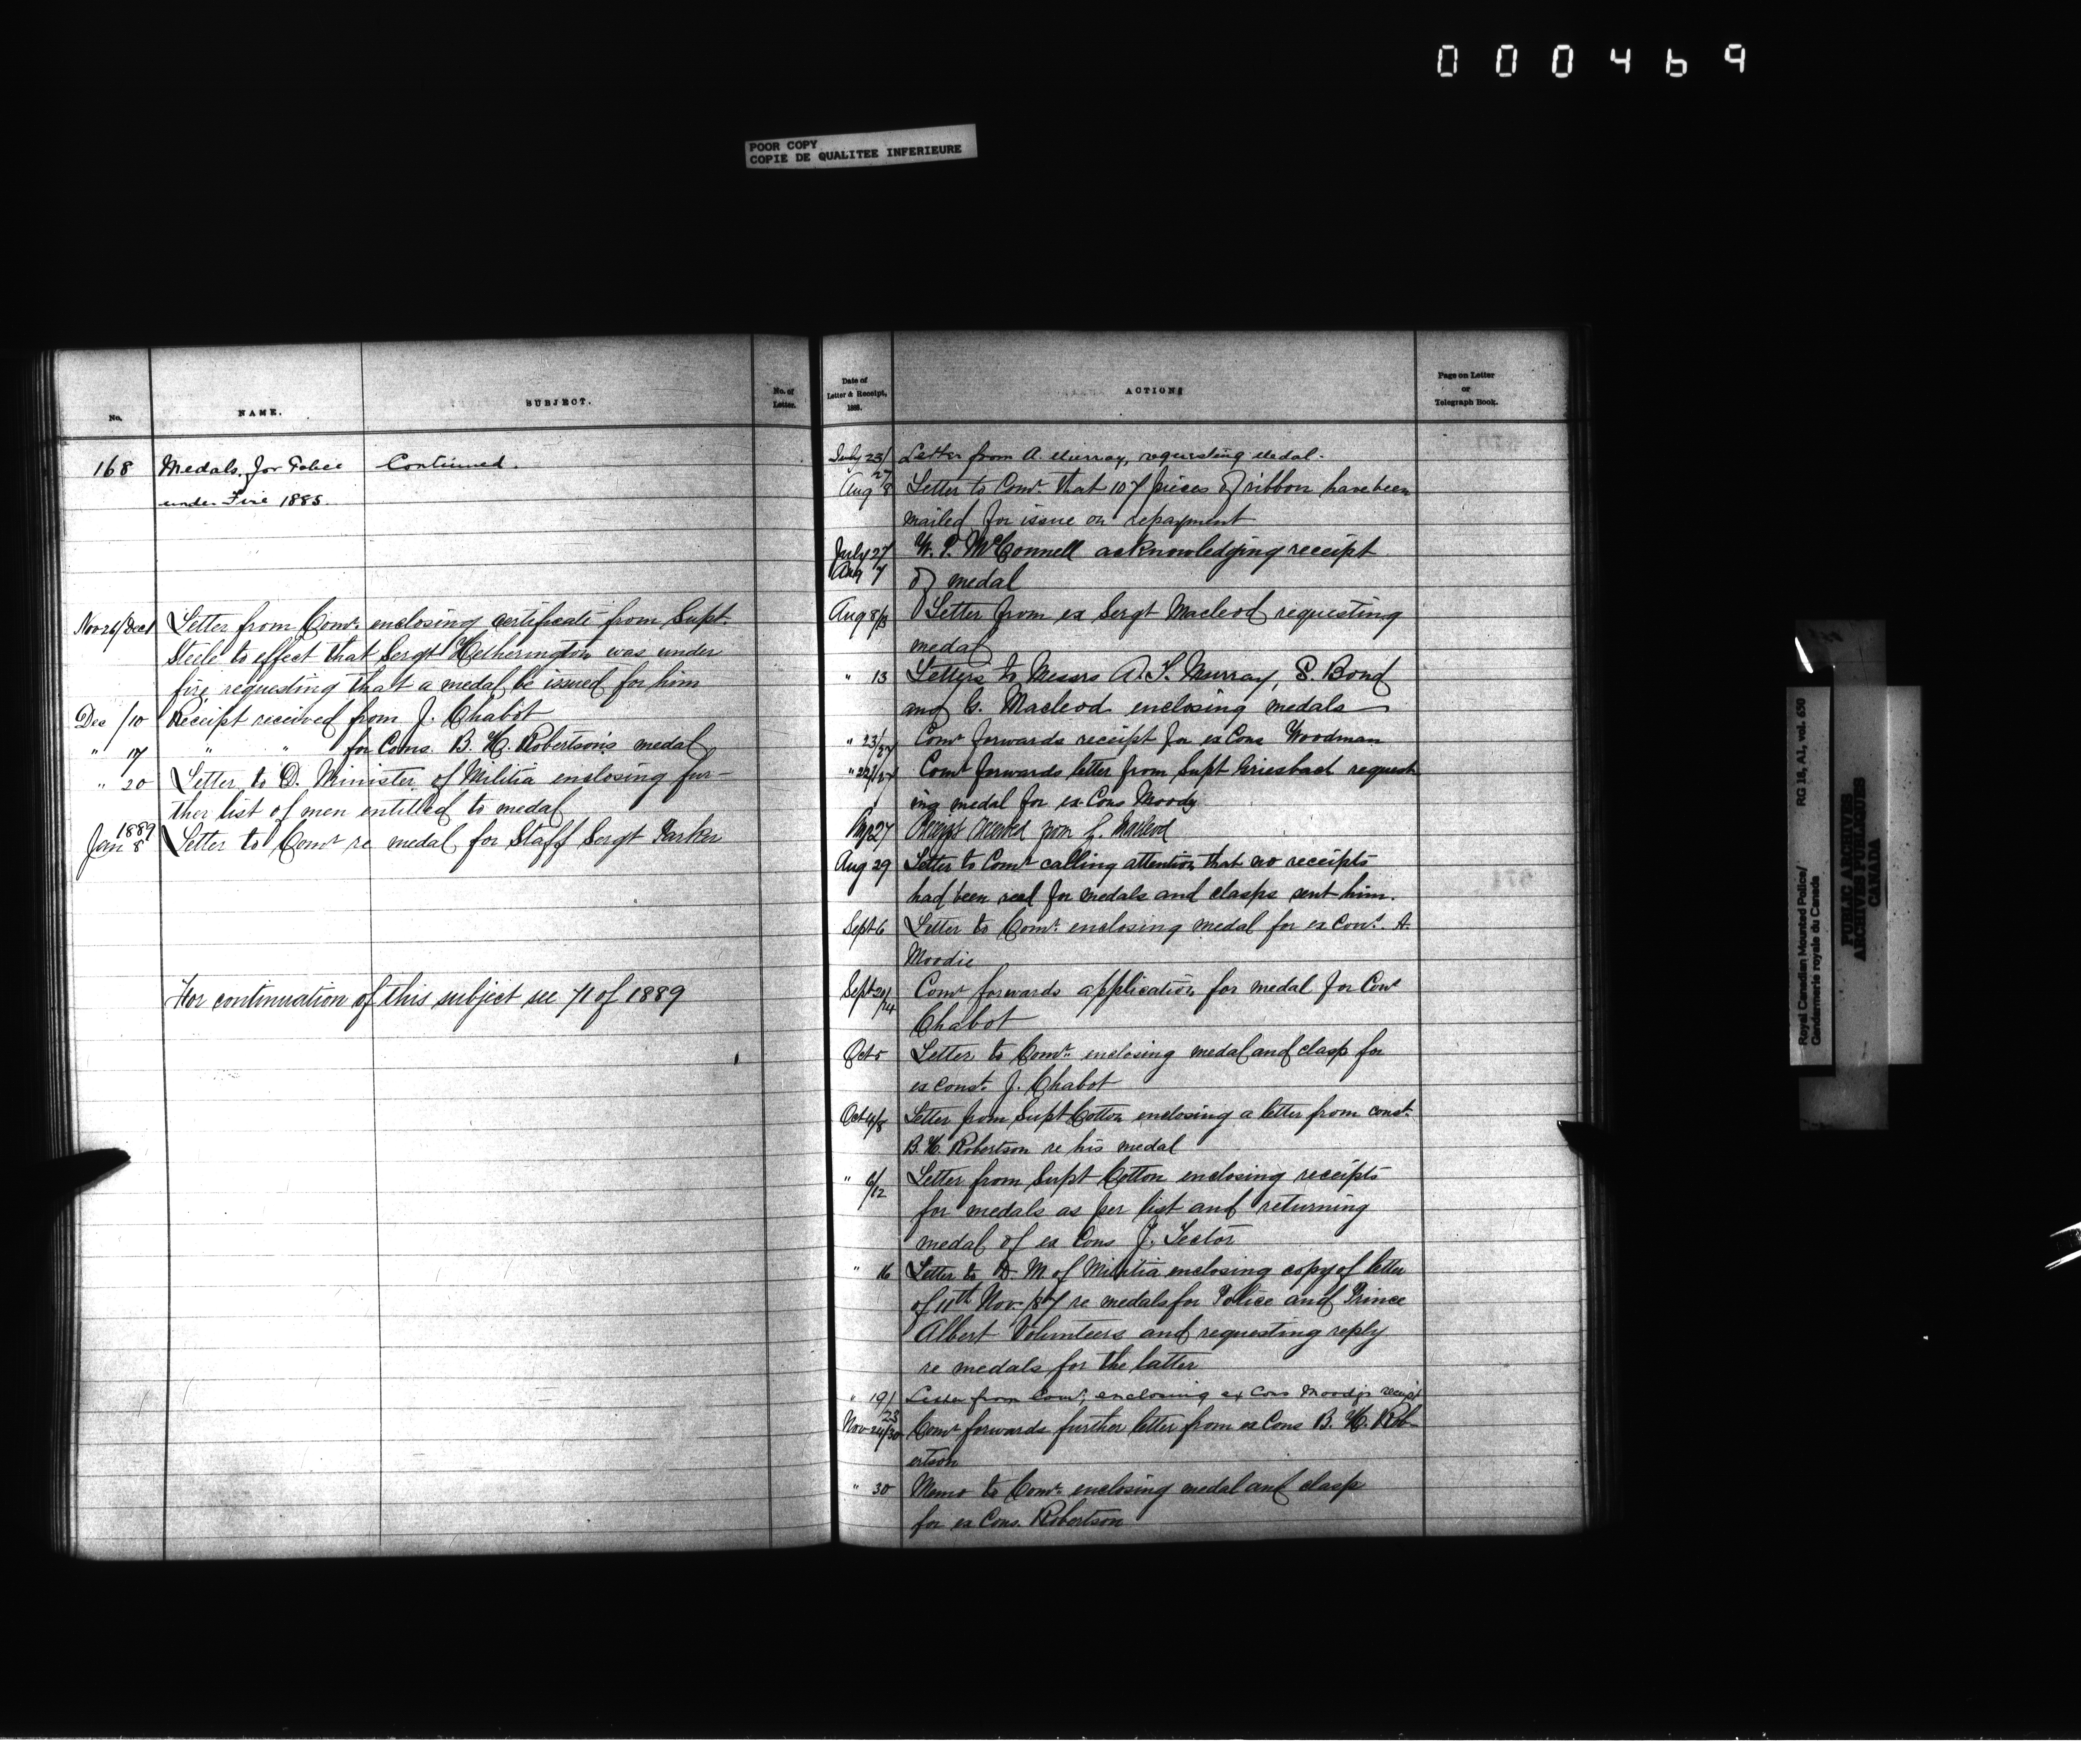 000469
POOR COPY
COPIE DE QUALITEE INFERIEURE
No.
NAME.
SUBJECT.
No. of
Letter.
168 Medals for Police Continued.
under Fire 1885.
Nov 26/Dec 1 Letter from Comr. enclosing certificate from Supt.
Steele to effect that Sergt Hetherington was under
fire requesting that a medal be issued for him
Dec /10 Receipt received from J. Chabot
" 17 " " for Cons. B. H. Robertson's medal
" 20 Letter to D. Minister of Militia enclosing fur-
ther list of men entitled to medal
1889
Jan 8 Letter to Comr re medal for Staff Sergt Parker
For continuation of this subject see 71 of 1889
Date of
Letter & Receipt,
1888.
ACTION
Page on Letter
or
Telegraph Book.
July 23/27 Letter from A. Murray, requesting Medal.
Aug 8 Letter to Comr. that 107 pieces of ribbon have been
mailed for issue on repayment
July 27 W. P. McConnell acknowledging receipt
Aug 7 of medal
Aug 8/13 Letter from ex Sergt Macleod requesting
medal
" 13 Letters to Messrs A. S. Murray, S. Bond
and G. Macleod enclosing medals
" 23/27 Comr forwards receipt for ex Cons Woodman
" 22/27 Comr forwards letter from Supt Griesbach request
ing medal for ex Cons Moody
Aug 27 Receipt received from G. Macleod
Aug 29 Letter to Comr calling attention that no receipts
had been recd for medals and clasps sent him.
Sept 6 Letter to Comr. enclosing medal for ex Cons. A.
Moodie
Sept 20/24 Comr forwards application for medal for Cons
Chabot
Oct 5 Letter to Comr. enclosing medal and clasp for
ex Const. J. Chabot
Oct 4/8 Letter from Supt Cotton enclosing a letter from const.
B. H. Robertson re his medal
" 6/12 Letter from Supt Cotton enclosing receipts
for medals as per list and returning
medal of ex Cons J. Tector
" 16 Letter to D. M. of Militia enclosing copy of letter
of 11th Nov. /87 re medals for Police and Prince
Albert Volunteers and requesting reply
re medals for the latter
" 19/23 Letter from Comr, enclosing ex Cons Moody's receipt
Nov 24/30 Comr forwards further letter from ex Cons B. H. Rob
ertson
" 30 Memo to Comr. enclosing medal and clasp
for ex Cons. Robertson
Royal Canadian Mounted Police/
Gendarmerie royale du Canada
RG 18, A1, vol. 630
PUBLIC ARCHIVES
ARCHIVES PUBLIQUES
CANADA